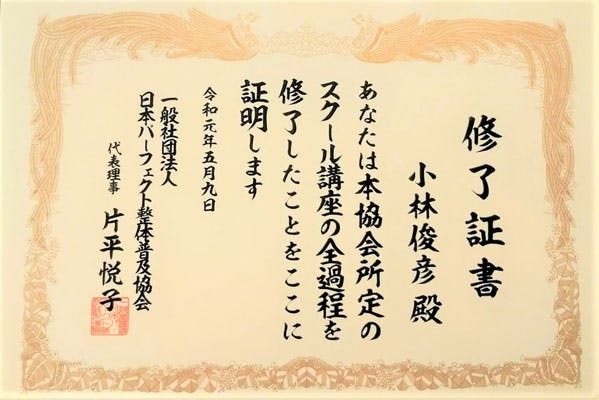 修了証書
小林俊彦 殿
あなたは本協会所定の
スクール講座の全過程を
修了したことをここに
証明します
令和元年五月九日
一般社団法人
日本パーフェクト整体普及協会
代表理事 片平悦子